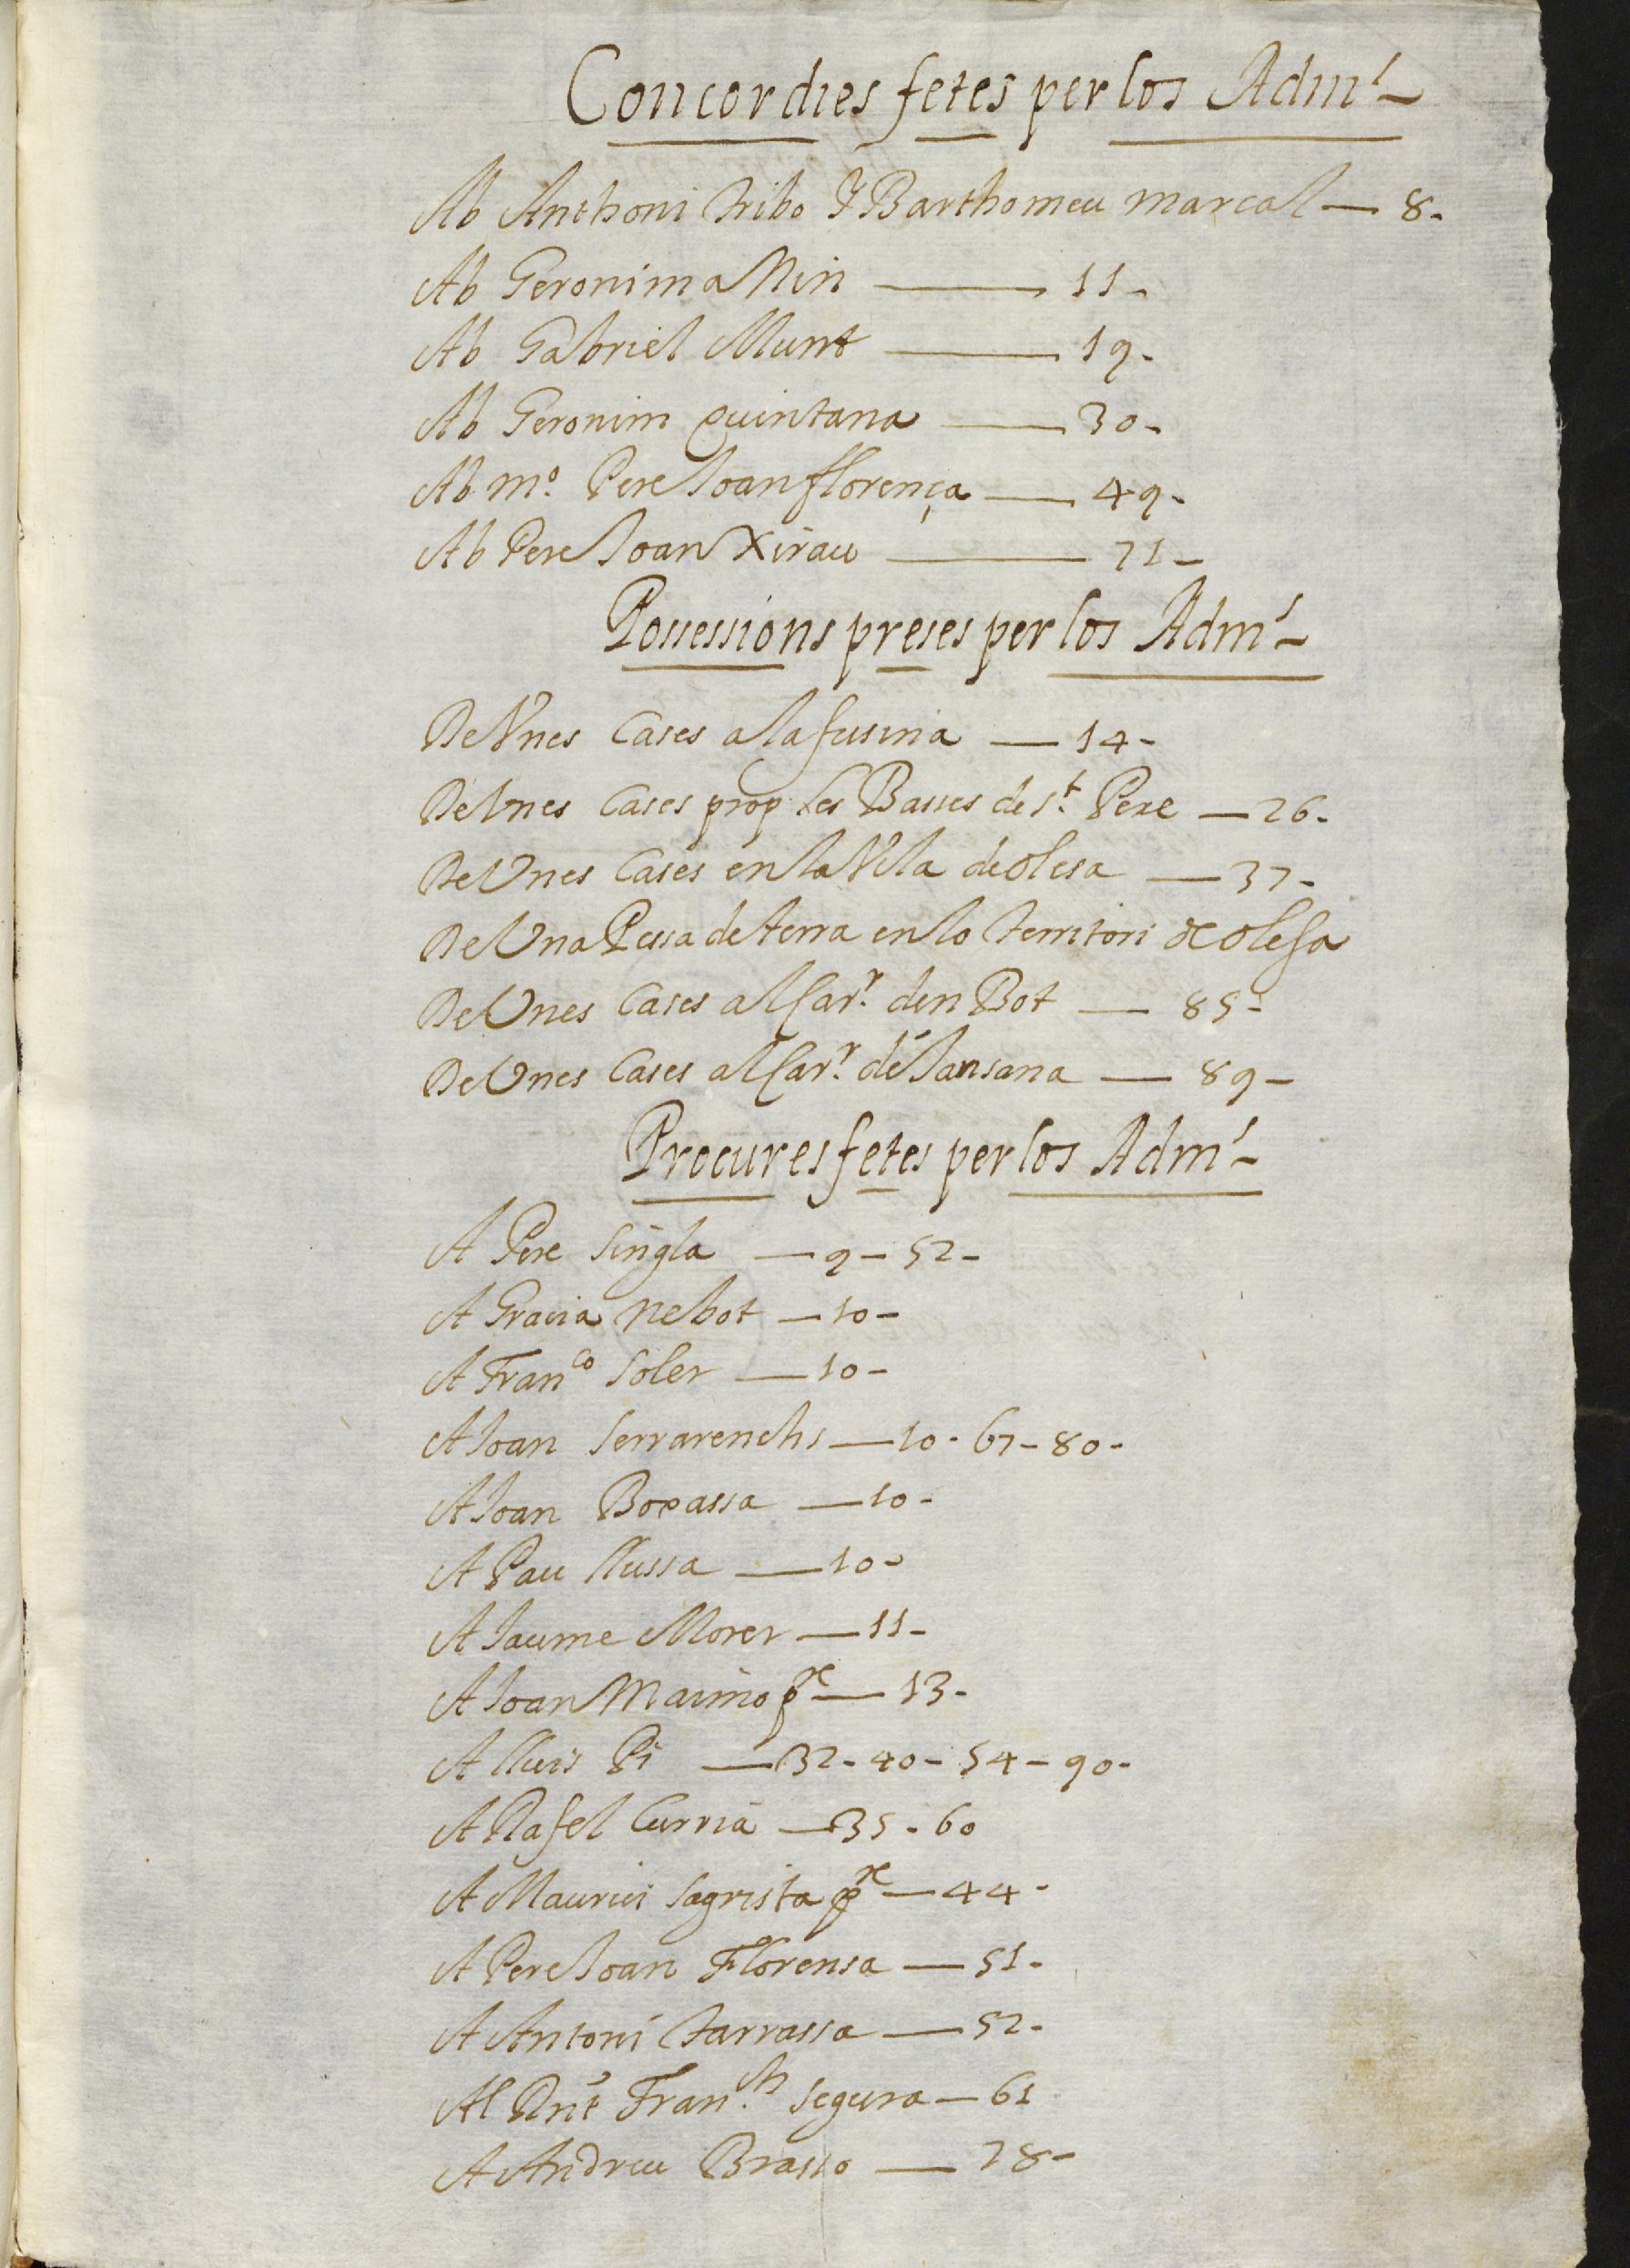 Concordies fetes per los Adm.^s
Ab Anthoni Tribo Y Barthomeu marcal — 8.
Ab Geronima Nin — 11 -
Ab Gabriel Munt — 19 -
Ab Geronim quintana — 30 -
Ab m.º Pere Joan florença — 49 -
Ab Pere Joan Xirau — 71 -
Possessions preses per los Adm.^s
De Vnes Cases a la fusina — 14 -
De Vnes Cases prop les Basses de s.^t Pere — 26 -
De Vnes Cases en la Vila de olesa — 37 -
De Vna Pessa de terra en lo territori de olesa
De Vnes Cases al Car.^r den Bot — 85 -
De Vnes Cases al Car.^r de Jansana — 89 -
Procures fetes per los Adm.^s
A Pere Singla — 9 - 52 -
A Gracia nebot — 10 -
A Fran.^co Soler — 10 -
A Joan Serrarenchs — 10 - 67 - 80 -
A Joan — 10 -
A Pau llussa — 10 -
A Jaume Morer — 11 -
A Joan Maimo p^re — 13 -
A lluis Pi — 32 - 40 - 54 - 90 -
A Rafel Curria — 35 - 60
A Maurici Sagrista p^re — 44 -
A Pere Joan Florensa — 51 -
A Antoni Tarrassa — 52 -
Al Fran.^ch Segura — 61
A Andreu Brasso — 78 -